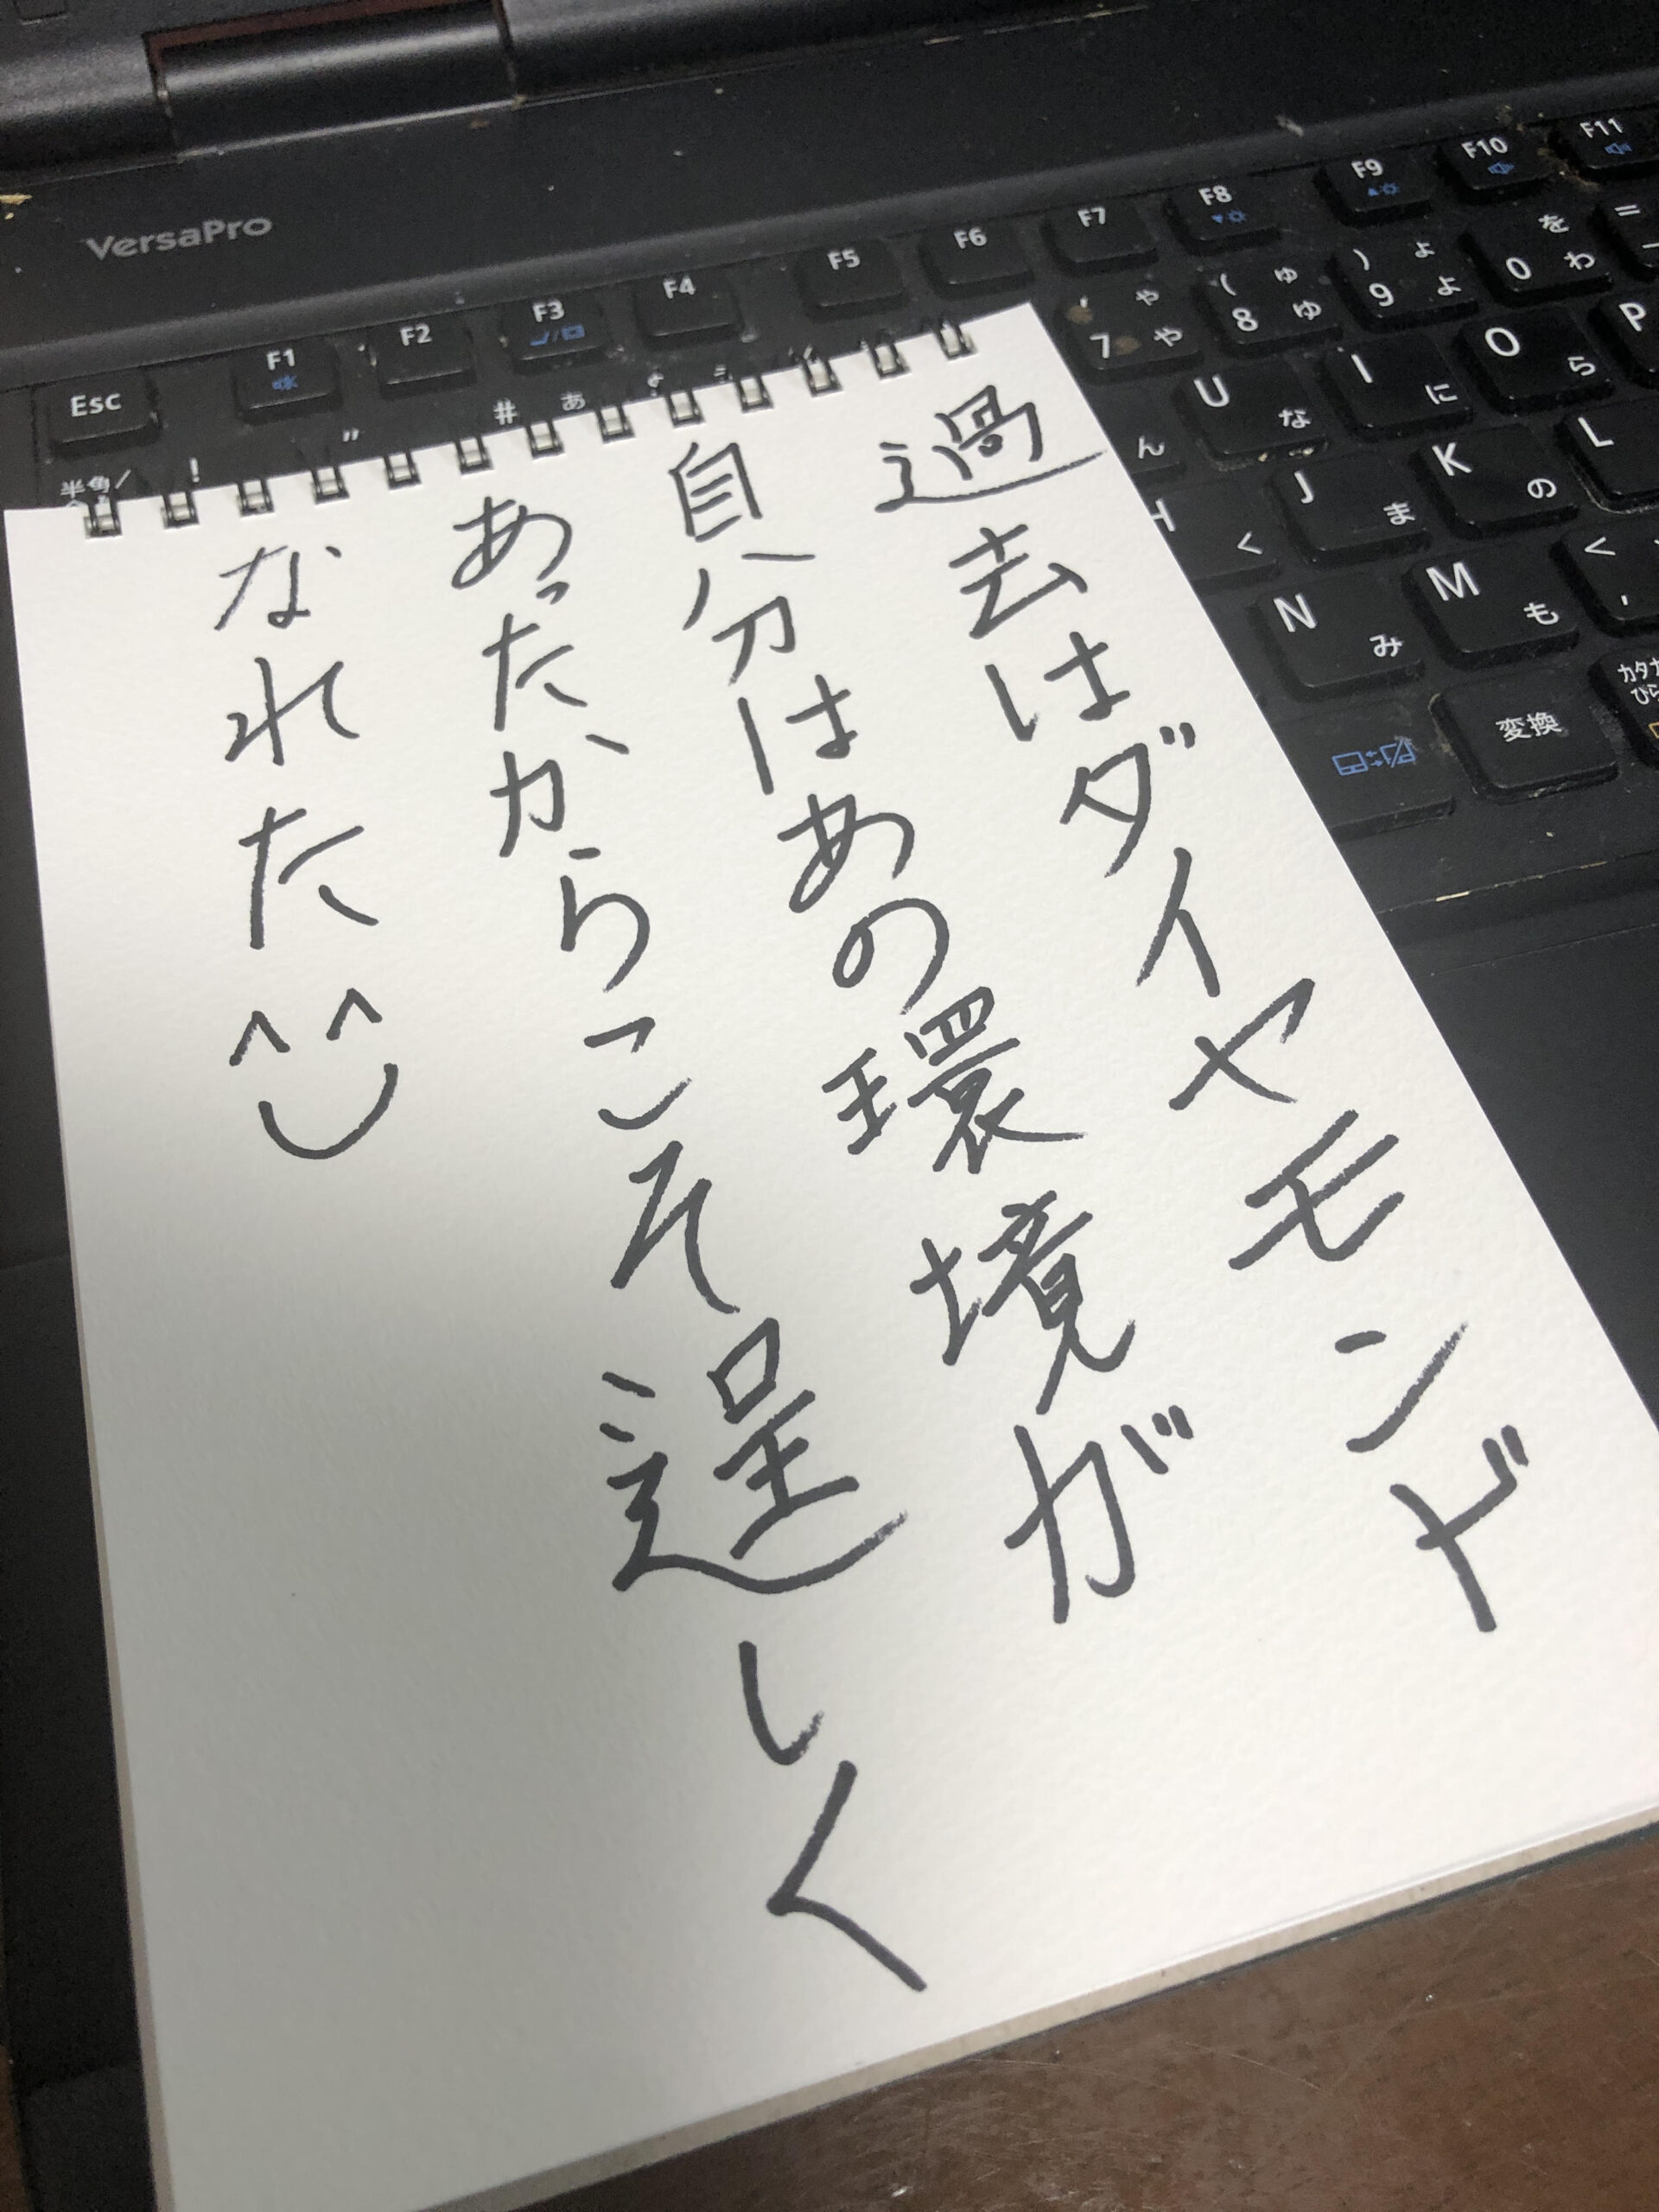 過去はダイヤモンド
自分はあの環境が
あったからこそ逞しく
なれた
VersaPro
Esc
F1
F2
F3
F4
F5
F6
F7
F8
F9
F10
F11
半角/
!
"
# あ
' や 7 や
( ゅ 8 ゆ
) ょ 9 よ
を 0 わ
=
U な
I に
O ら
P
ん
H く
J ま
K の
L
N み
M も
<
,
変換